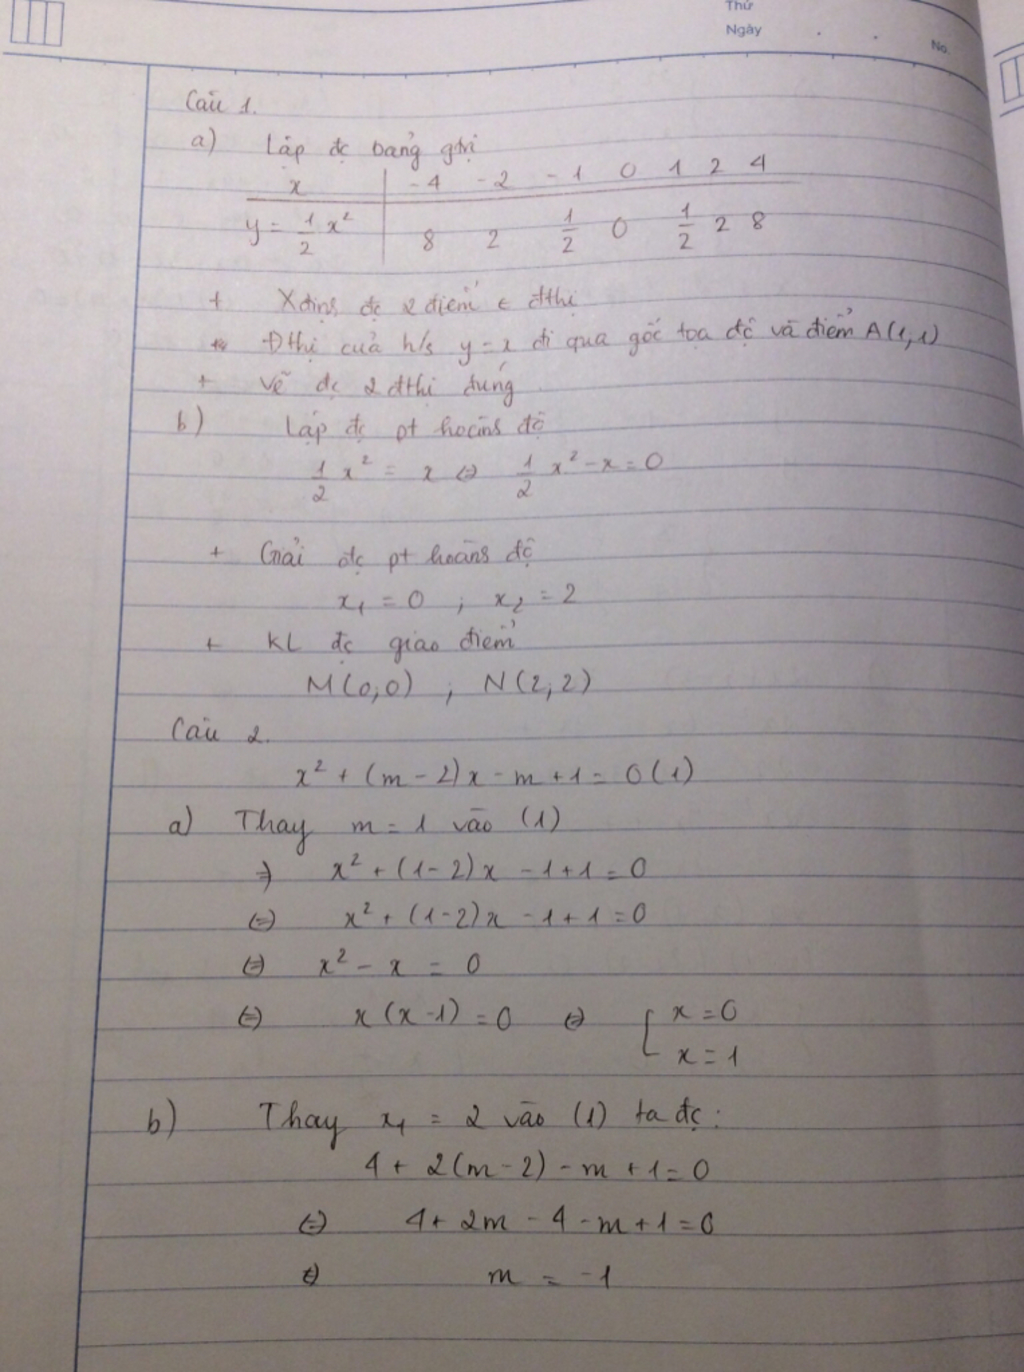 Thứ
Ngày . .
No.
Câu 1.
a) Lập đc bảng gtrị
x | -4 -2 -1 0 1 2 4
y = 1/2 x² | 8 2 1/2 0 1/2 2 8
+ Xđịnh đc 2 điểm ∈ đthị
Đthị của h/s y = x đi qua gốc tọa độ và điểm A(1,1)
+ Vẽ đc 2 đthị đúng
b) Lập đc pt hoành độ
1/2 x² = x ⇔ 1/2 x² - x = 0
+ Giải đc pt hoành độ
x₁ = 0 ; x₂ = 2
+ KL đc giao điểm
M(0,0) , N(2,2)
Câu 2.
x² + (m - 2)x - m + 1 = 0 (1)
a) Thay m = 1 vào (1)
⇒ x² + (1 - 2)x - 1 + 1 = 0
⇔ x² + (1 - 2)x - 1 + 1 = 0
⇔ x² - x = 0
⇔ x(x - 1) = 0 ⇔ [ x = 0
x = 1
b) Thay x₁ = 2 vào (1) ta đc :
4 + 2(m - 2) - m + 1 = 0
⇔ 4 + 2m - 4 - m + 1 = 0
⇔ m = -1